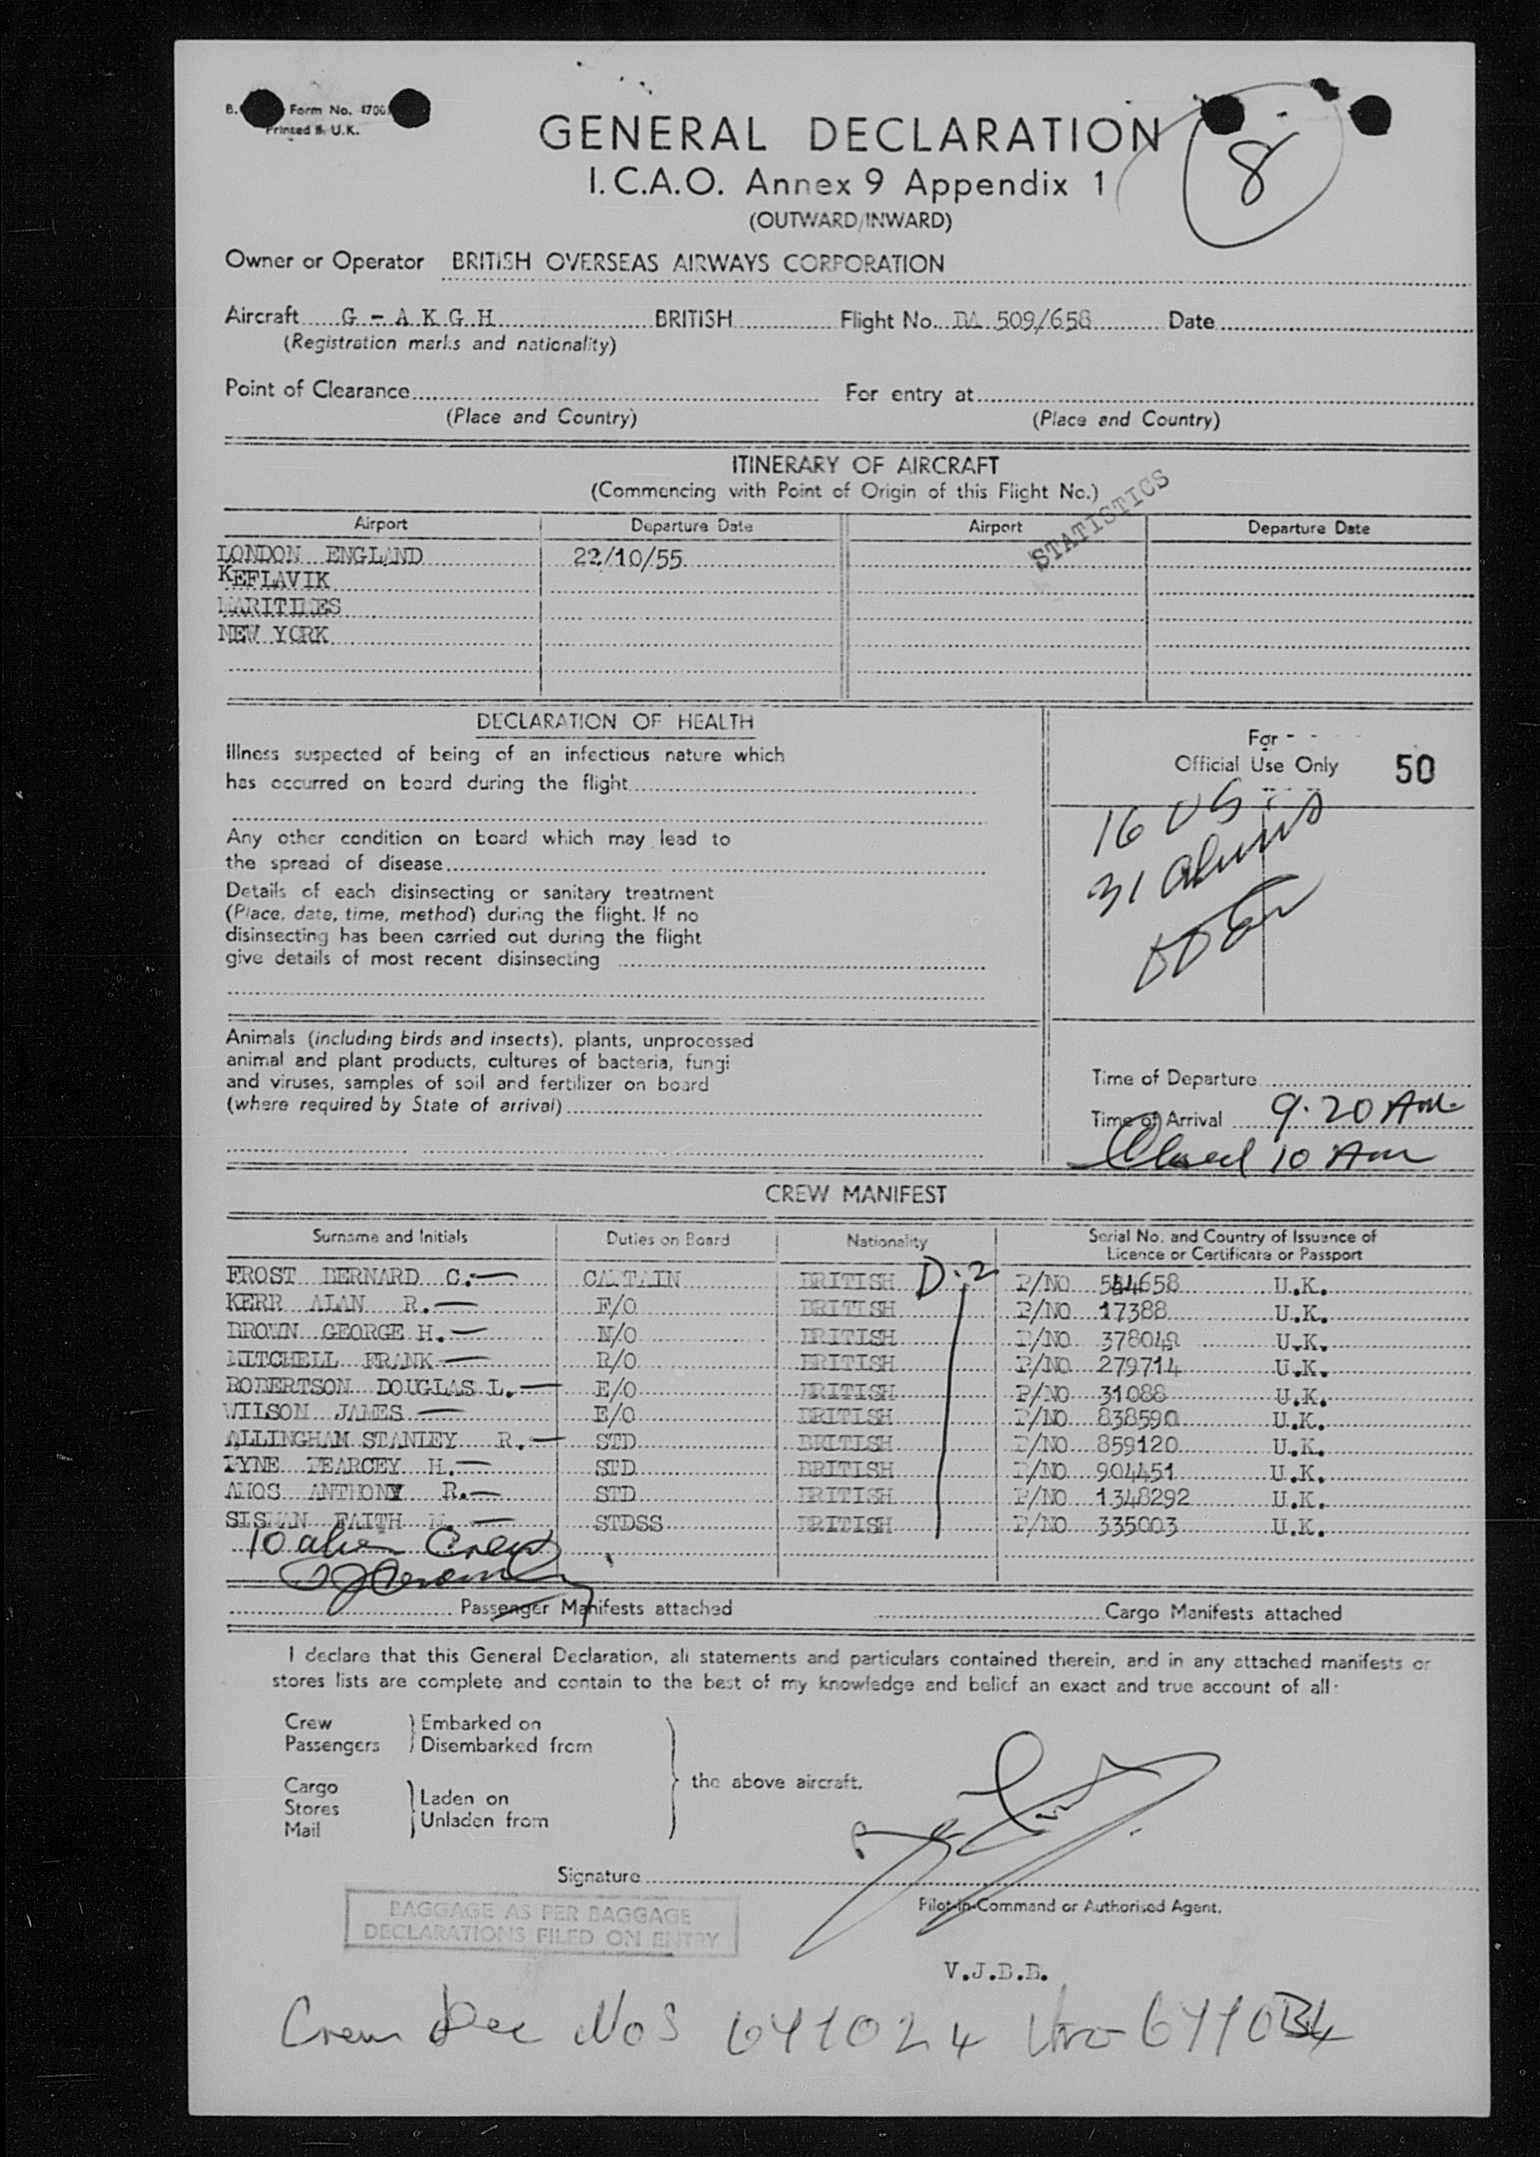 Form No. 4706
Printed in U.K.
8
GENERAL DECLARATION
I.C.A.O. Annex 9 Appendix 1
(OUTWARD/INWARD)
Owner or Operator BRITISH OVERSEAS AIRWAYS CORPORATION
Aircraft G - A K G H BRITISH Flight No. BA 509/658 Date
(Registration marks and nationality)
Point of Clearance For entry at
(Place and Country) (Place and Country)
ITINERARY OF AIRCRAFT
(Commencing with Point of Origin of this Flight No.)
STATISTICS
Airport Departure Date Airport Departure Date
LONDON ENGLAND 22/10/55
KEFLAVIK
MARITIMES
NEW YORK
DECLARATION OF HEALTH
Illness suspected of being of an infectious nature which
has occurred on board during the flight
Any other condition on board which may lead to
the spread of disease
Details of each disinsecting or sanitary treatment
(Place, date, time, method) during the flight. If no
disinsecting has been carried out during the flight
give details of most recent disinsecting
For
Official Use Only 50
16 US
31 Aliens
Animals (including birds and insects), plants, unprocessed
animal and plant products, cultures of bacteria, fungi
and viruses, samples of soil and fertilizer on board
(where required by State of arrival)
Time of Departure
Time of Arrival 9.20 Am.
Closed 10 Am
CREW MANIFEST
Surname and Initials Duties on Board Nationality Serial No. and Country of Issuance of
Licence or Certificate or Passport
D-2
FROST BERNARD C. CAPTAIN BRITISH P/NO 544658 U.K.
KERR ALAN R. F/O BRITISH P/NO 17388 U.K.
BROWN GEORGE H. N/O BRITISH P/NO 378048 U.K.
MITCHELL FRANK R/O BRITISH P/NO 279714 U.K.
ROBERTSON DOUGLAS L. E/O BRITISH P/NO 31088 U.K.
WILSON JAMES E/O BRITISH P/NO 838590 U.K.
ALLINGHAM STANLEY R. STD BRITISH P/NO 859120 U.K.
PYNE PEARCEY H. STD BRITISH P/NO 904451 U.K.
AMOS ANTHONY R. STD BRITISH P/NO 1348292 U.K.
SISMAN FAITH M. STDSS BRITISH P/NO 335003 U.K.
10 alien Crew
Passenger Manifests attached Cargo Manifests attached
I declare that this General Declaration, all statements and particulars contained therein, and in any attached manifests or
stores lists are complete and contain to the best of my knowledge and belief an exact and true account of all:
Crew Embarked on
Passengers Disembarked from
the above aircraft.
Cargo
Stores Laden on
Mail Unladen from
Signature
Pilot-in-Command or Authorised Agent.
BAGGAGE AS PER BAGGAGE
DECLARATIONS FILED ON ENTRY
V.J.B.B.
Crew Dec Nos 641024